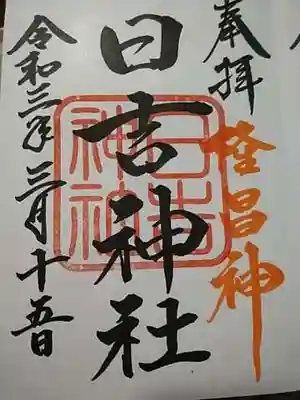 奉拝
日吉神社
日吉
神社
令和三年三月十五日